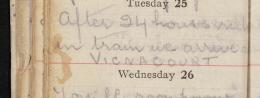 Tuesday 25
After 24 hours
in train we arrive
VIGNACOURT
Wednesday 26